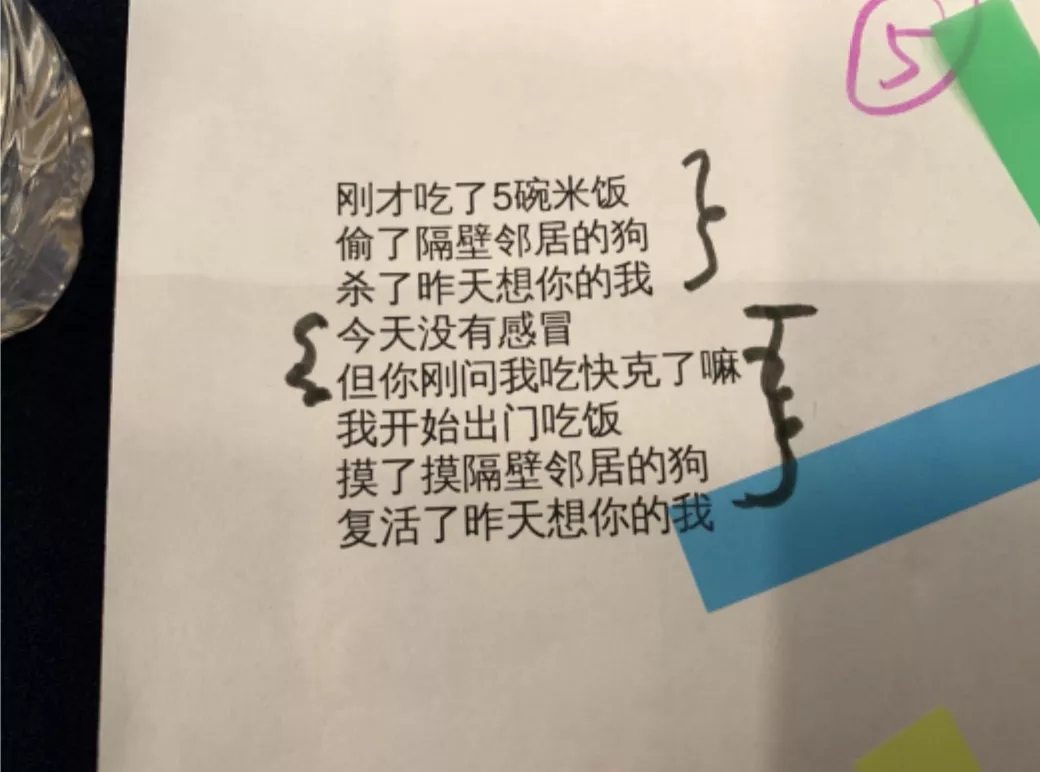 5
刚才吃了5碗米饭
偷了隔壁邻居的狗
杀了昨天想你的我
今天没有感冒
但你刚问我吃快克了嘛
我开始出门吃饭
摸了摸隔壁邻居的狗
复活了昨天想你的我